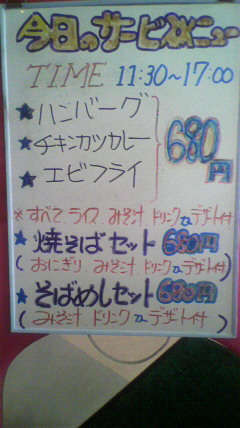 今日のサービスメニュー
TIME 11:30~17:00
★ハンバーグ
★チキンカツカレー
★エビフライ
680円
※すべて、ライス、みそ汁、ドリンクorデザート付
★焼そばセット 680円
(おにぎり、みそ汁、ドリンクorデザート付)
★そばめしセット 680円
(みそ汁、ドリンクorデザート付)